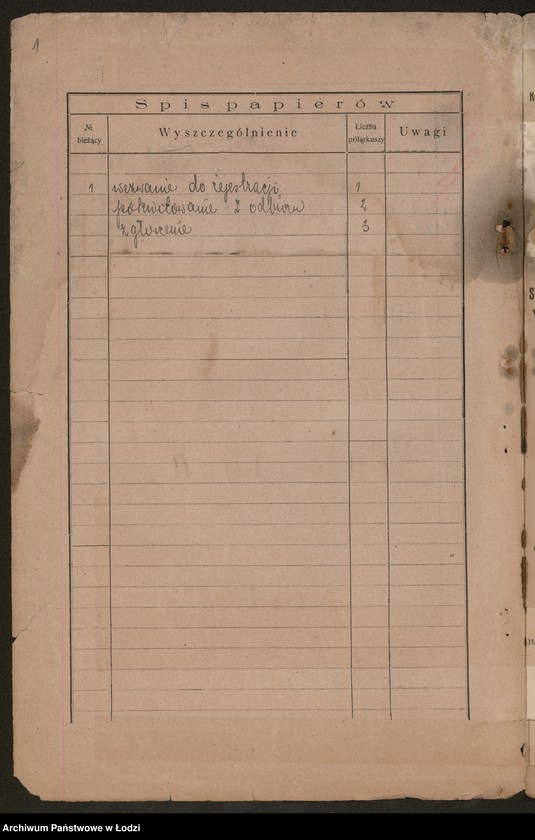 1
Spis papierów
№ bieżący
Wyszczególnienie
Liczba półarkuszy
Uwagi
1 wezwanie do rejestracji 1
pokwitowanie z odbioru 2
zgłoszenie 3
Archiwum Państwowe w Łodzi